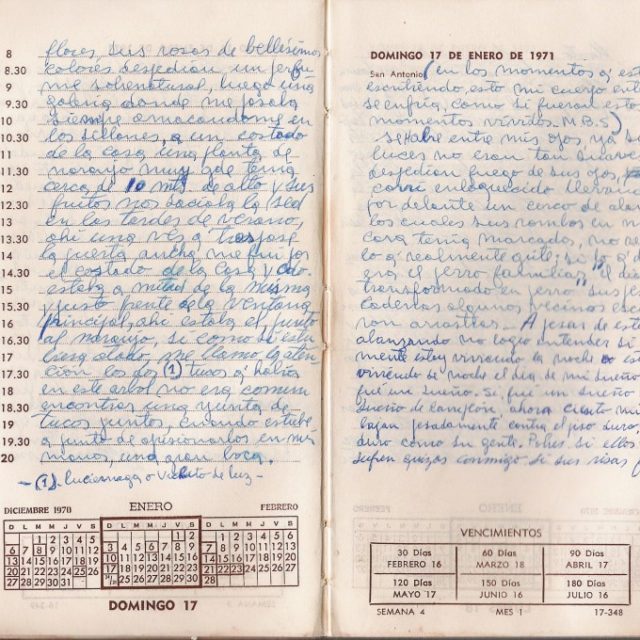 8 flores, sus rosas de bellísimos
8.30 colores despedían un perfu
9 me sobrenatural, luego una
9.30 galería donde me pasaba
10 siempre amacandome en
10.30 los sillones, a un costado
11 de la casa una planta de
11.30 naranjo muy gde tenía
12 cerca de 10 mts de alto y sus
12.30 frutos nos saciaba la sed
13 en las tardes de verano,
13.30 ahí una vés q' traspasé
14 la puerta ancha me fui por
14.30 el costado de la casa y cdo.
15 estaba a mitad de la misma
15.30 y justo frente de la ventana
16 principal, ahí estaba el, junto
16.30 al naranjo, si como si estu
17 biera atado, me llamo la aten
17.30 ción los dos (1) tucos q' había
18 en este arbol no era comun
18.30 encontrar una yunta de
19 tucos juntos, cuando estube
19.30 a punto de apisionarlos en mis
20 manos, una gran boca,
- (1) luciernaga o vichito de luz -
DICIEMBRE 1970 ENERO FEBRERO
D L M M J V S D L M M J V S D L M M J V S
1 2 3 4 5 1 2 1 2 3 4 5 6
6 7 8 9 10 11 12 3 4 5 6 7 8 9 7 8 9 10 11 12 13
13 14 15 16 17 18 19 10 11 12 13 14 15 16 14 15 16 17 18 19 20
20 21 22 23 24 25 26 17 18 19 20 21 22 23 21 22 23 24 25 26 27
27 28 29 30 31 24/31 25 26 27 28 29 30 28
DOMINGO 17
DOMINGO 17 DE ENERO DE 1971
San Antonio (en los momentos q' est
escribiendo esto mi cuerpo ent
se enfría, como si fueran esto
momentos vividos. M.B.S)
Se habre entre mis ojos, ya s
luces no eran tan suave
despedían fuego de sus ojos,
corrí enloquecido llevan
por delante un cerco de alam
los cuales sus rombos en m
cara tenía marcados, no
lo q' realmente
era el perro familiar, el
transformado en perro, sus
cadenas algunos vecinos esc
ron arrastras. A pesar de est
alcanzando no logro entender si
mente estoy viviendo la noche o
viviendo de noche el día de mi sueño
fué un sueño. Si, fué un sueño
sueño de campeón, ahora cuanto
bajan pesadamente contra el piso duro,
duro como su gente. Pobres si ellos
supen quizas conmigo si sus risas
VENCIMIENTOS
30 Días 60 Días 90 Días
FEBRERO 16 MARZO 18 ABRIL 17
120 Días 150 Días 180 Días
MAYO 17 JUNIO 16 JULIO 16
SEMANA 4 MES 1 17-348